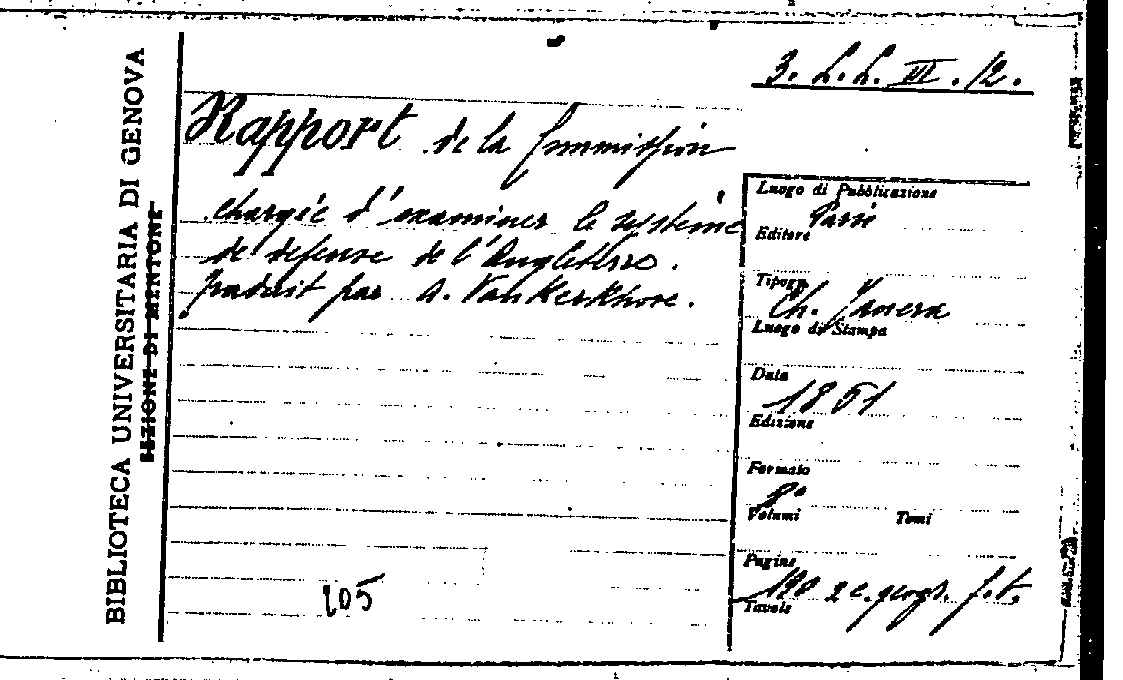 BIBLIOTECA UNIVERSITARIA DI GENOVA
SEZIONE DI MENTONE
3. L.L. III. 12.
Rapport de la Commission
chargée d'examiner le système
de défense de l'Angleterre.
traduit par A. Van Kerkhove.
Luogo di Pubblicazione
Paris
Editore
Tipogr.
Ch. Tanera
Luogo di Stampa
Data
1861
Edizione
Formato
8°
Volumi Tomi
Pagine
190 2 c. geogr. f.t.
Tavole
205